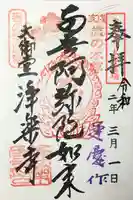 奉拝
令和二年三月一日
南無阿弥陀如来
運慶作
大御堂
浄楽寺